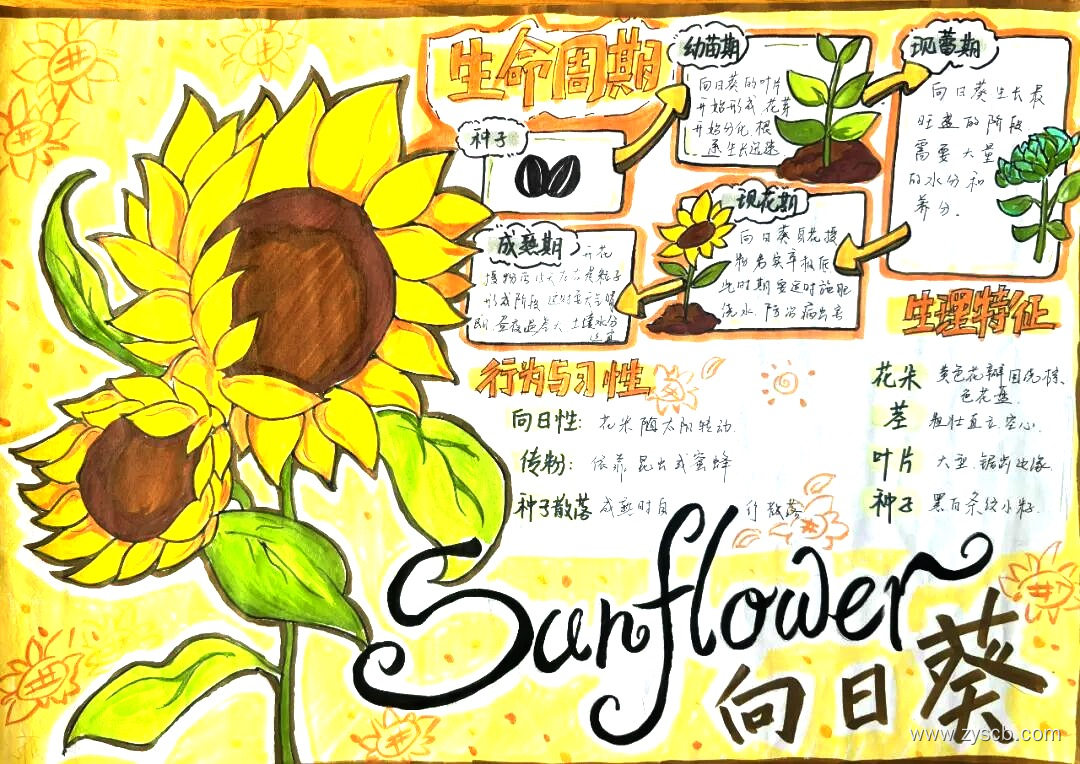 生命周期
种子
幼苗期
向日葵的叶片
开始形成 花芽
开始分化,根
系生长迅速
现蕾期
向日葵生长最
旺盛的阶段
需要大量
的水分和
养分.
现花期
向日葵
此时期要适时施肥
浇水,防治病虫害
成熟期
开花
形成阶段
昼夜温差大 土壤水分
适宜
行为与习性
向日性: 花朵随太阳转动
传粉: 依靠昆虫或蜜蜂
种子散落 成熟时自行散落
生理特征
花朵 黄色花瓣围绕棕
色花盘.
茎 粗壮直立空心.
叶片 大型.锯齿边缘
种子 黑白条纹小籽.
Sunflower
向日葵
www.zyscb.com